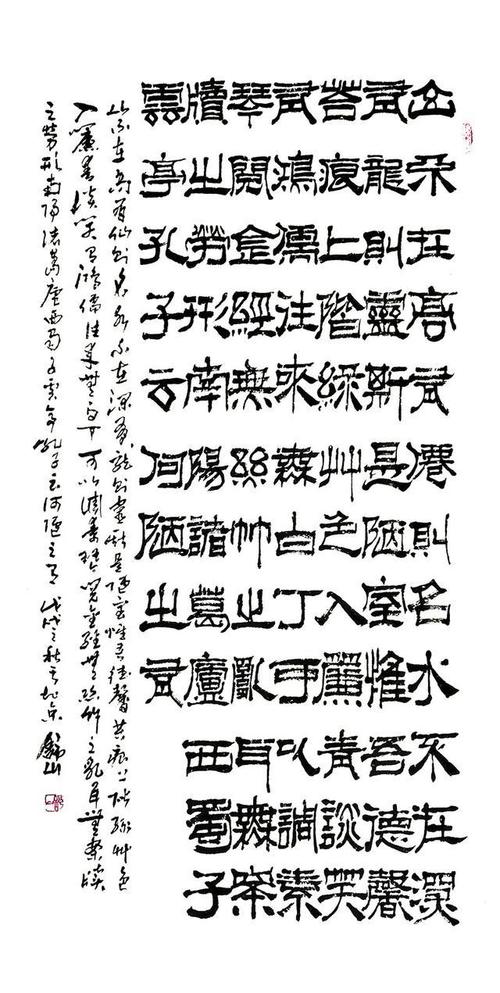 山不在高有僊則名水不在深
有龍則靈斯是陋室惟吾德馨
苔痕上階綠艸色入簾青談笑
有鴻儒往來無白丁可以調素
琴閱金經無絲竹之亂耳無案
牘之勞形南陽諸葛廬西蜀子
雲亭孔子云何陋之有
山不在高有仙則名水不在深有龍則靈斯是陋室惟吾德馨苔痕上階綠艸色
入簾青談笑有鴻儒往來無白丁可以調素琴閱金經無絲竹之亂耳無案牘
之勞形南陽諸葛廬西蜀子雲亭孔子云何陋之有 戊戌之秋